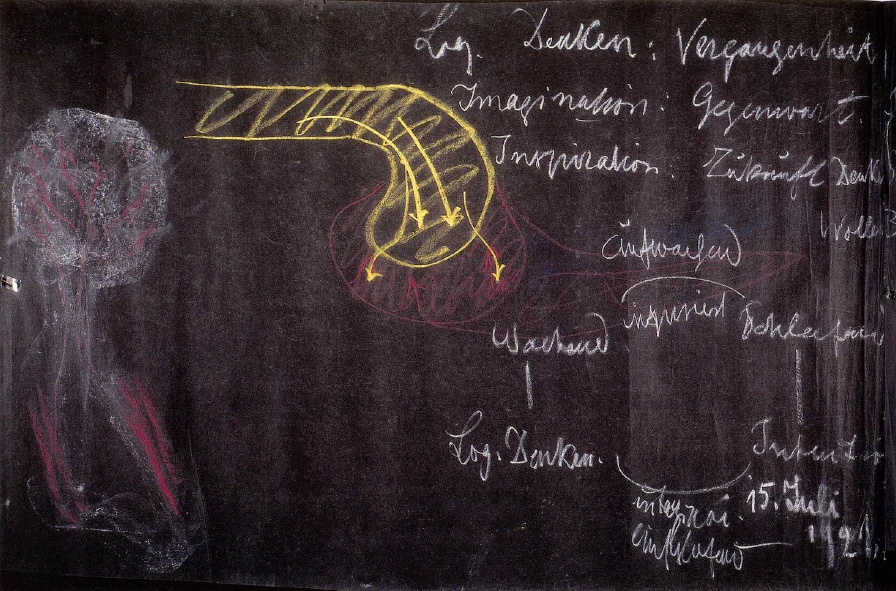 Log. Denken: Vergangenheit
Imagination: Gegenwart.
Inspiration: Zukünft Denk
Wolle
Aufwachend
inspiriert
Wachend
Schlafend
Log. Denken.
Intuitio
15. Juli
1921.
Einschlafend